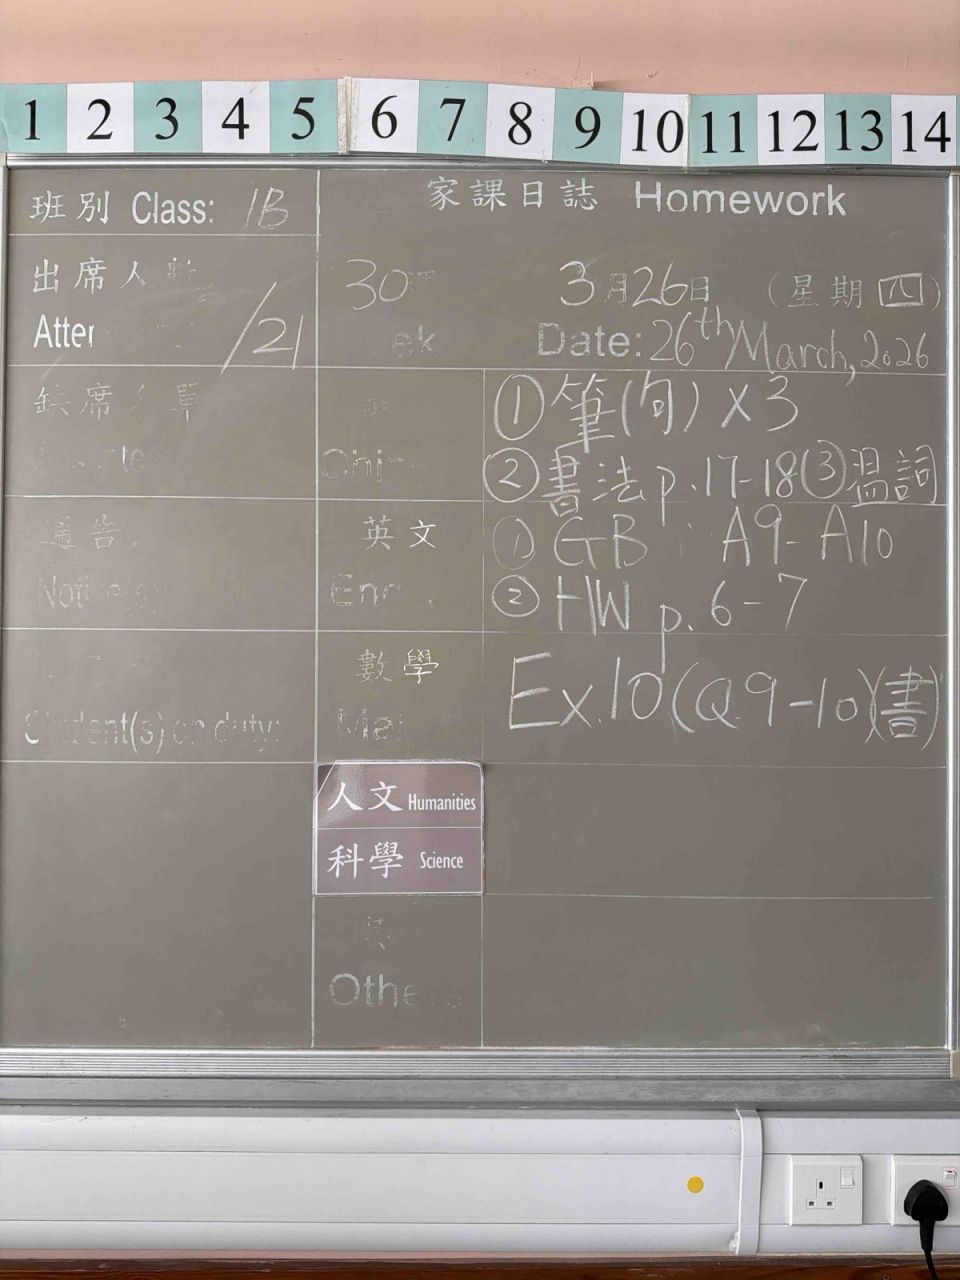 1 2 3 4 5 6 7 8 9 10 11 12 13 14
班別 Class: 1B
家課日誌 Homework
出席人數
/21
30週
3月26日 (星期四)
Date: 26th March, 2026
缺席名單
①筆(句) x3
②書法 p.17-18 ③溫詞
通告
英文
① GB A9-A10
② HW p.6-7
Student(s) on duty:
數學
Ex.10(Q9-10)(書)
人文 Humanities
科學 Science